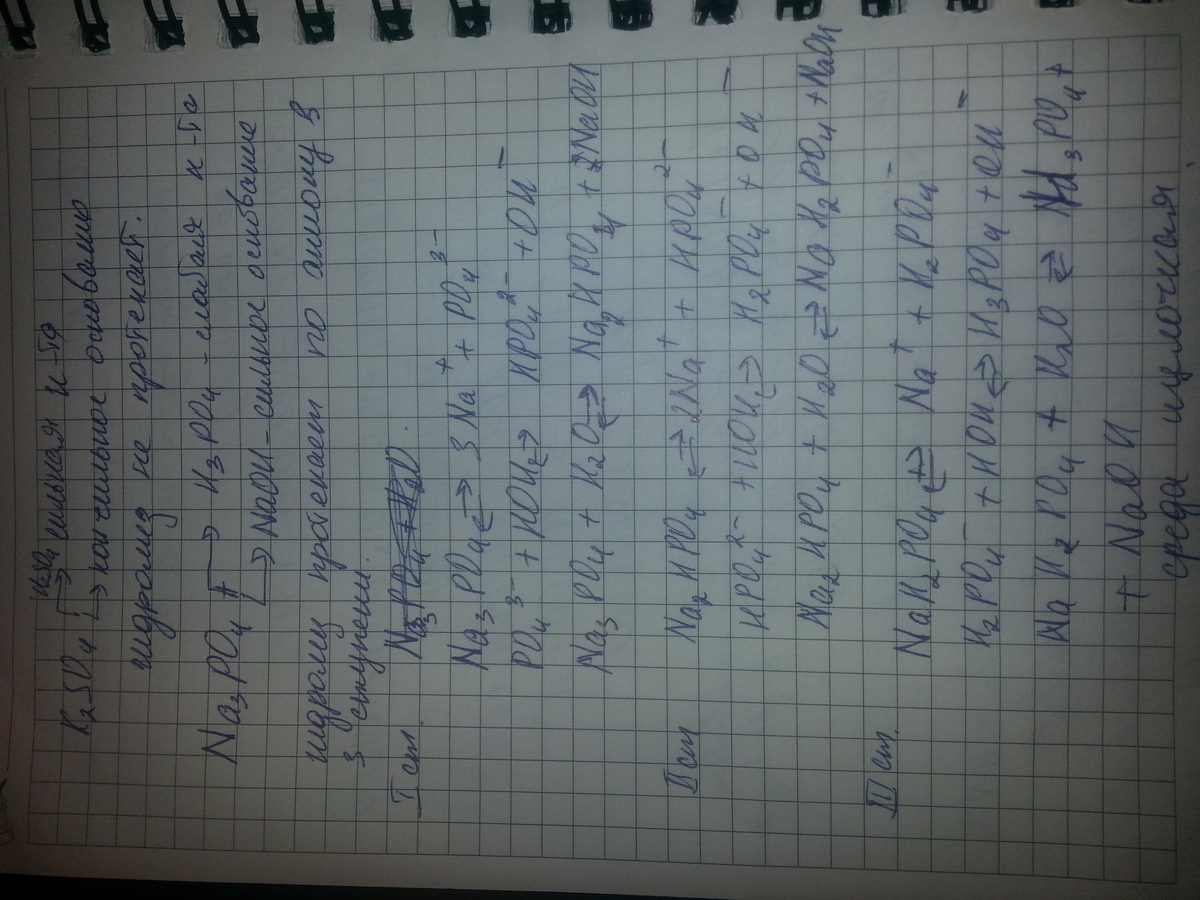 H₂SO₄ сильная к-та
K₂SO₄ → KOH сильное основание
гидролиз не протекает.
Na₃PO₄ → H₃PO₄ - слабая к-та
→ NaOH - сильное основание
гидролиз протекает по аниону в
3 ступени.
I ст. Na₃PO₄ + H₂O
Na₃PO₄ ⇄ 3Na⁺ + PO₄³⁻
PO₄³⁻ + HOH ⇄ HPO₄²⁻ + OH⁻
Na₃PO₄ + H₂O ⇄ Na₂HPO₄ + NaOH
II ст Na₂HPO₄ ⇄ 2Na⁺ + HPO₄²⁻
HPO₄²⁻ + HOH ⇄ H₂PO₄⁻ + OH⁻
Na₂HPO₄ + H₂O ⇄ NaH₂PO₄ + NaOH
III ст. NaH₂PO₄ ⇄ Na⁺ + H₂PO₄⁻
H₂PO₄⁻ + HOH ⇄ H₃PO₄ + OH⁻
NaH₂PO₄ + H₂O ⇄ H₃PO₄ +
+ NaOH
среда щелочная.